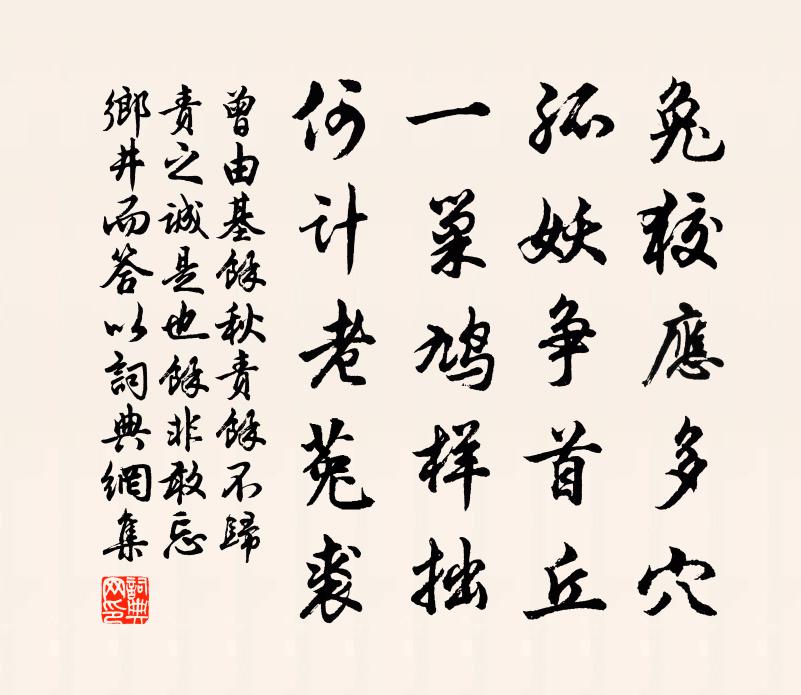 兔狡應多穴
狐妖争首丘
一巢鸠样拙
何计老菟裘
曾由基餘秋責餘不歸
責之誠是也餘非敢忘
鄉井而答以詞典網集